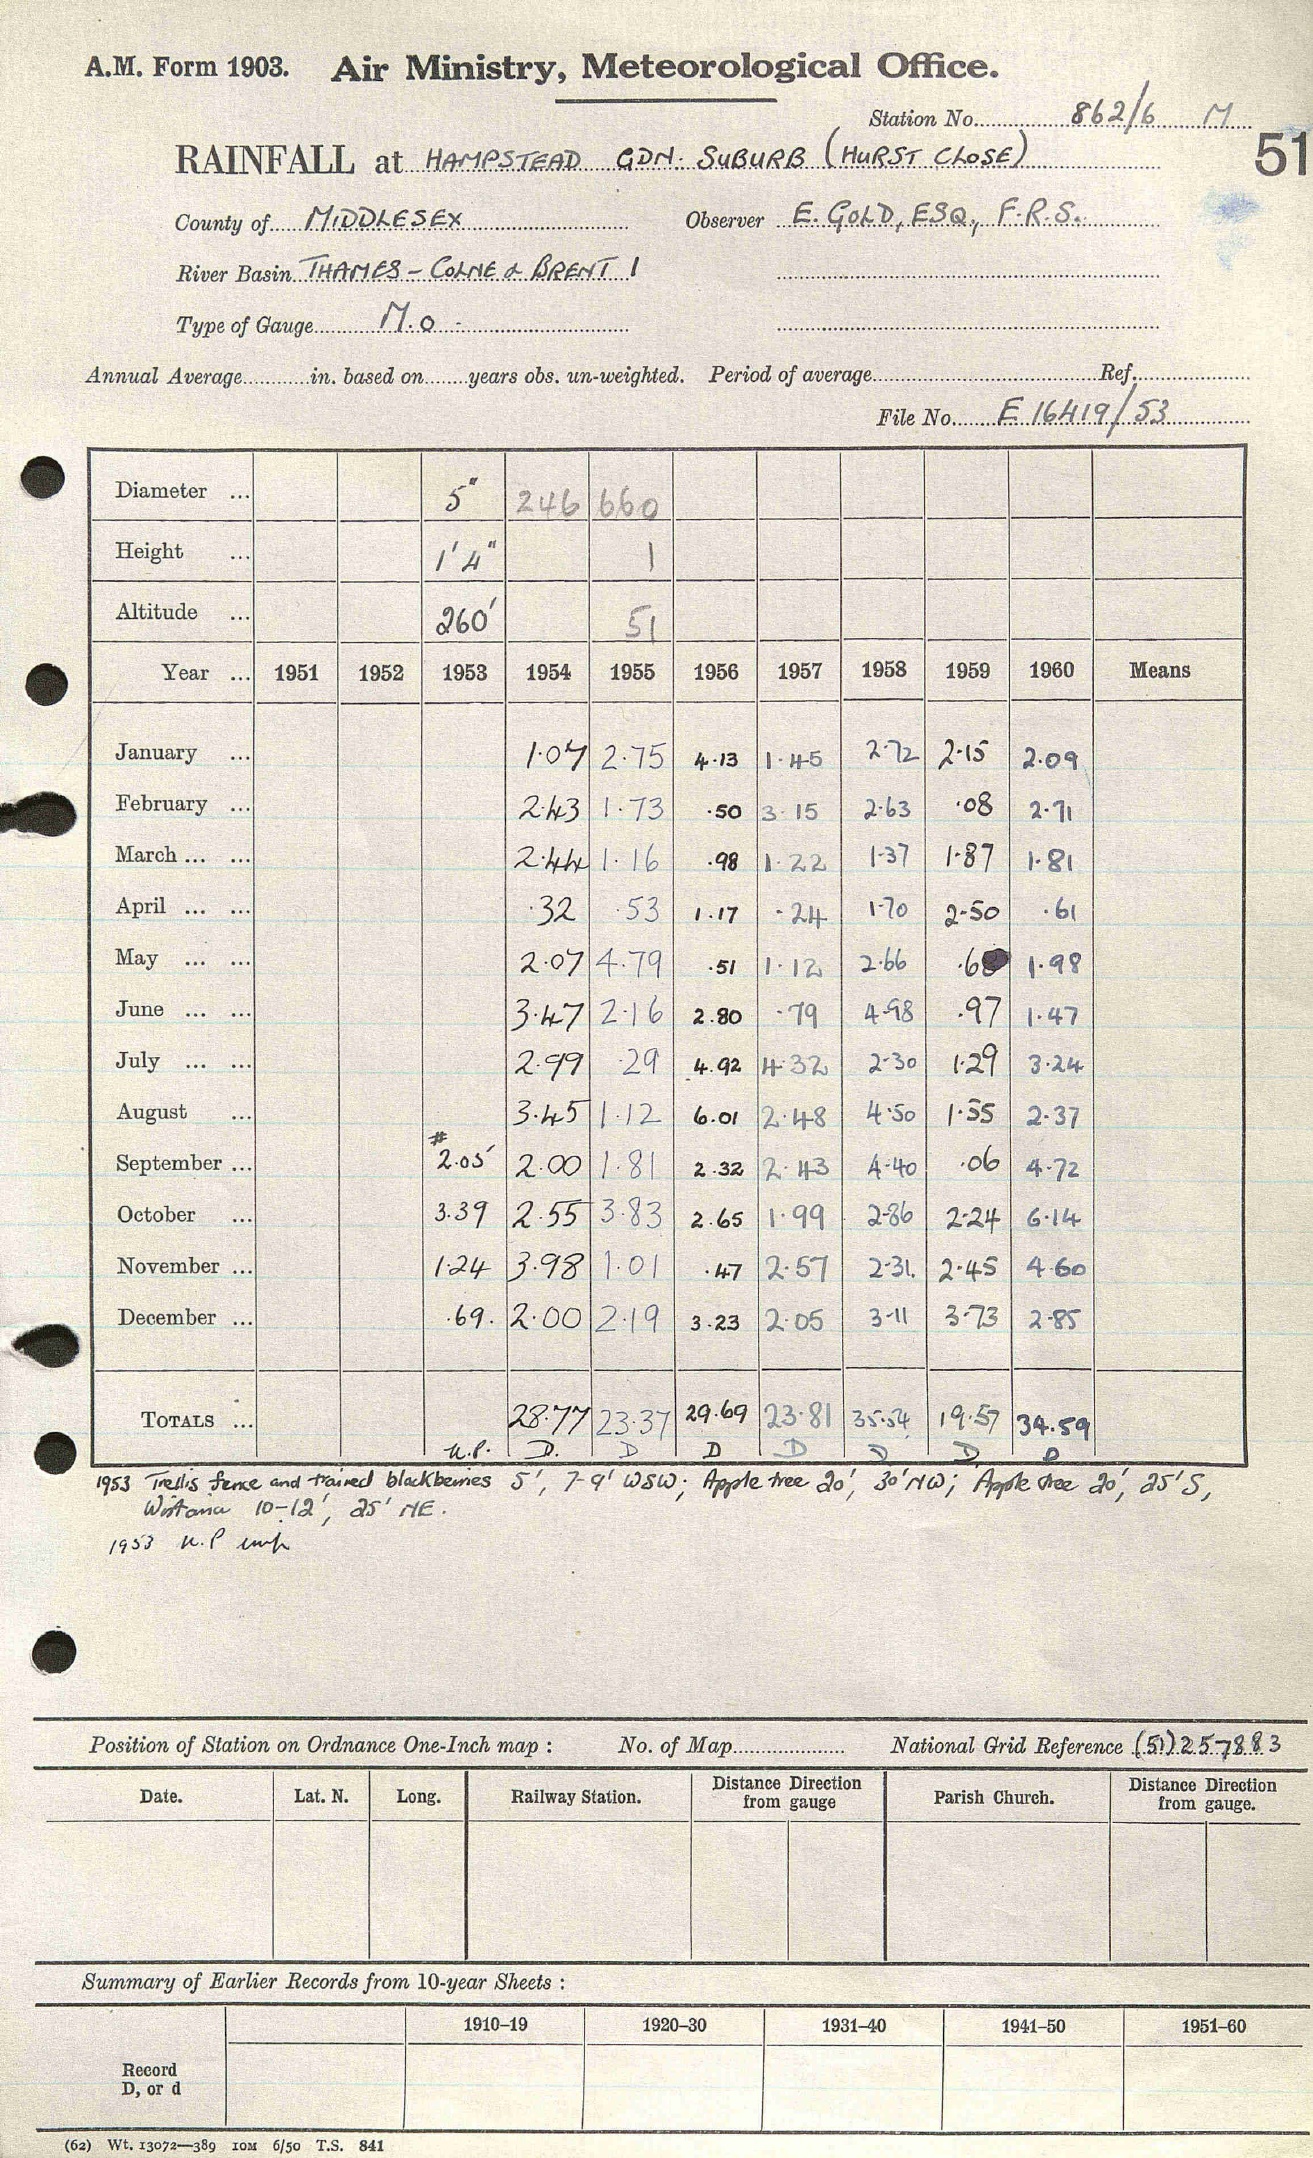 A.M. Form 1903. Air Ministry, Meteorological Office.
Station No. 862/6 M
51
RAINFALL at HAMPSTEAD GDN. SUBURB (HURST CLOSE)
County of MIDDLESEX Observer E. GOLD, ESQ., F.R.S.
River Basin THAMES – COLNE & BRENT 1
Type of Gauge M.O.
Annual Average in. based on years obs. un-weighted. Period of average Ref.
File No. E 16419/53
Diameter ... 5" 246 660
Height ... 1'4" 1
Altitude ... 260' 51
Year ... 1951 1952 1953 1954 1955 1956 1957 1958 1959 1960 Means
January ... 1.07 2.75 4.13 1.45 2.72 2.15 2.09
February ... 2.43 1.73 .50 3.15 2.63 .08 2.71
March ... ... 2.44 1.16 .98 1.22 1.37 1.87 1.81
April ... ... .32 .53 1.17 .24 1.70 2.50 .61
May ... ... 2.07 4.79 .51 1.12 2.66 .68 1.98
June ... ... 3.47 2.16 2.80 .79 4.98 .97 1.47
July ... ... 2.99 .29 4.92 4.32 2.30 1.29 3.24
August ... 3.45 1.12 6.01 2.48 4.50 1.55 2.37
September ... # 2.05 2.00 1.81 2.32 2.43 4.40 .06 4.72
October ... 3.39 2.55 3.83 2.65 1.99 2.86 2.24 6.14
November ... 1.24 3.98 1.01 .47 2.57 2.31 2.45 4.60
December ... .69. 2.00 2.19 3.23 2.05 3.11 3.73 2.85
TOTALS ... 28.77 23.37 29.69 23.81 35.54 19.57 34.59
N.P. D. D D D D D D
1953 Trellis fence and trained blackberries 5', 7-9' WSW; Apple tree 20', 30' NW; Apple tree 20', 25' S,
Wistaria 10-12', 25' NE.
1953 N.P
Position of Station on Ordnance One-Inch map : No. of Map National Grid Reference (51)257883
Date. Lat. N. Long. Railway Station. Distance Direction from gauge Parish Church. Distance Direction from gauge.
Summary of Earlier Records from 10-year Sheets :
1910–19 1920–30 1931–40 1941–50 1951–60
Record
D, or d
(62) Wt. 13072—389 10M 6/50 T.S. 841